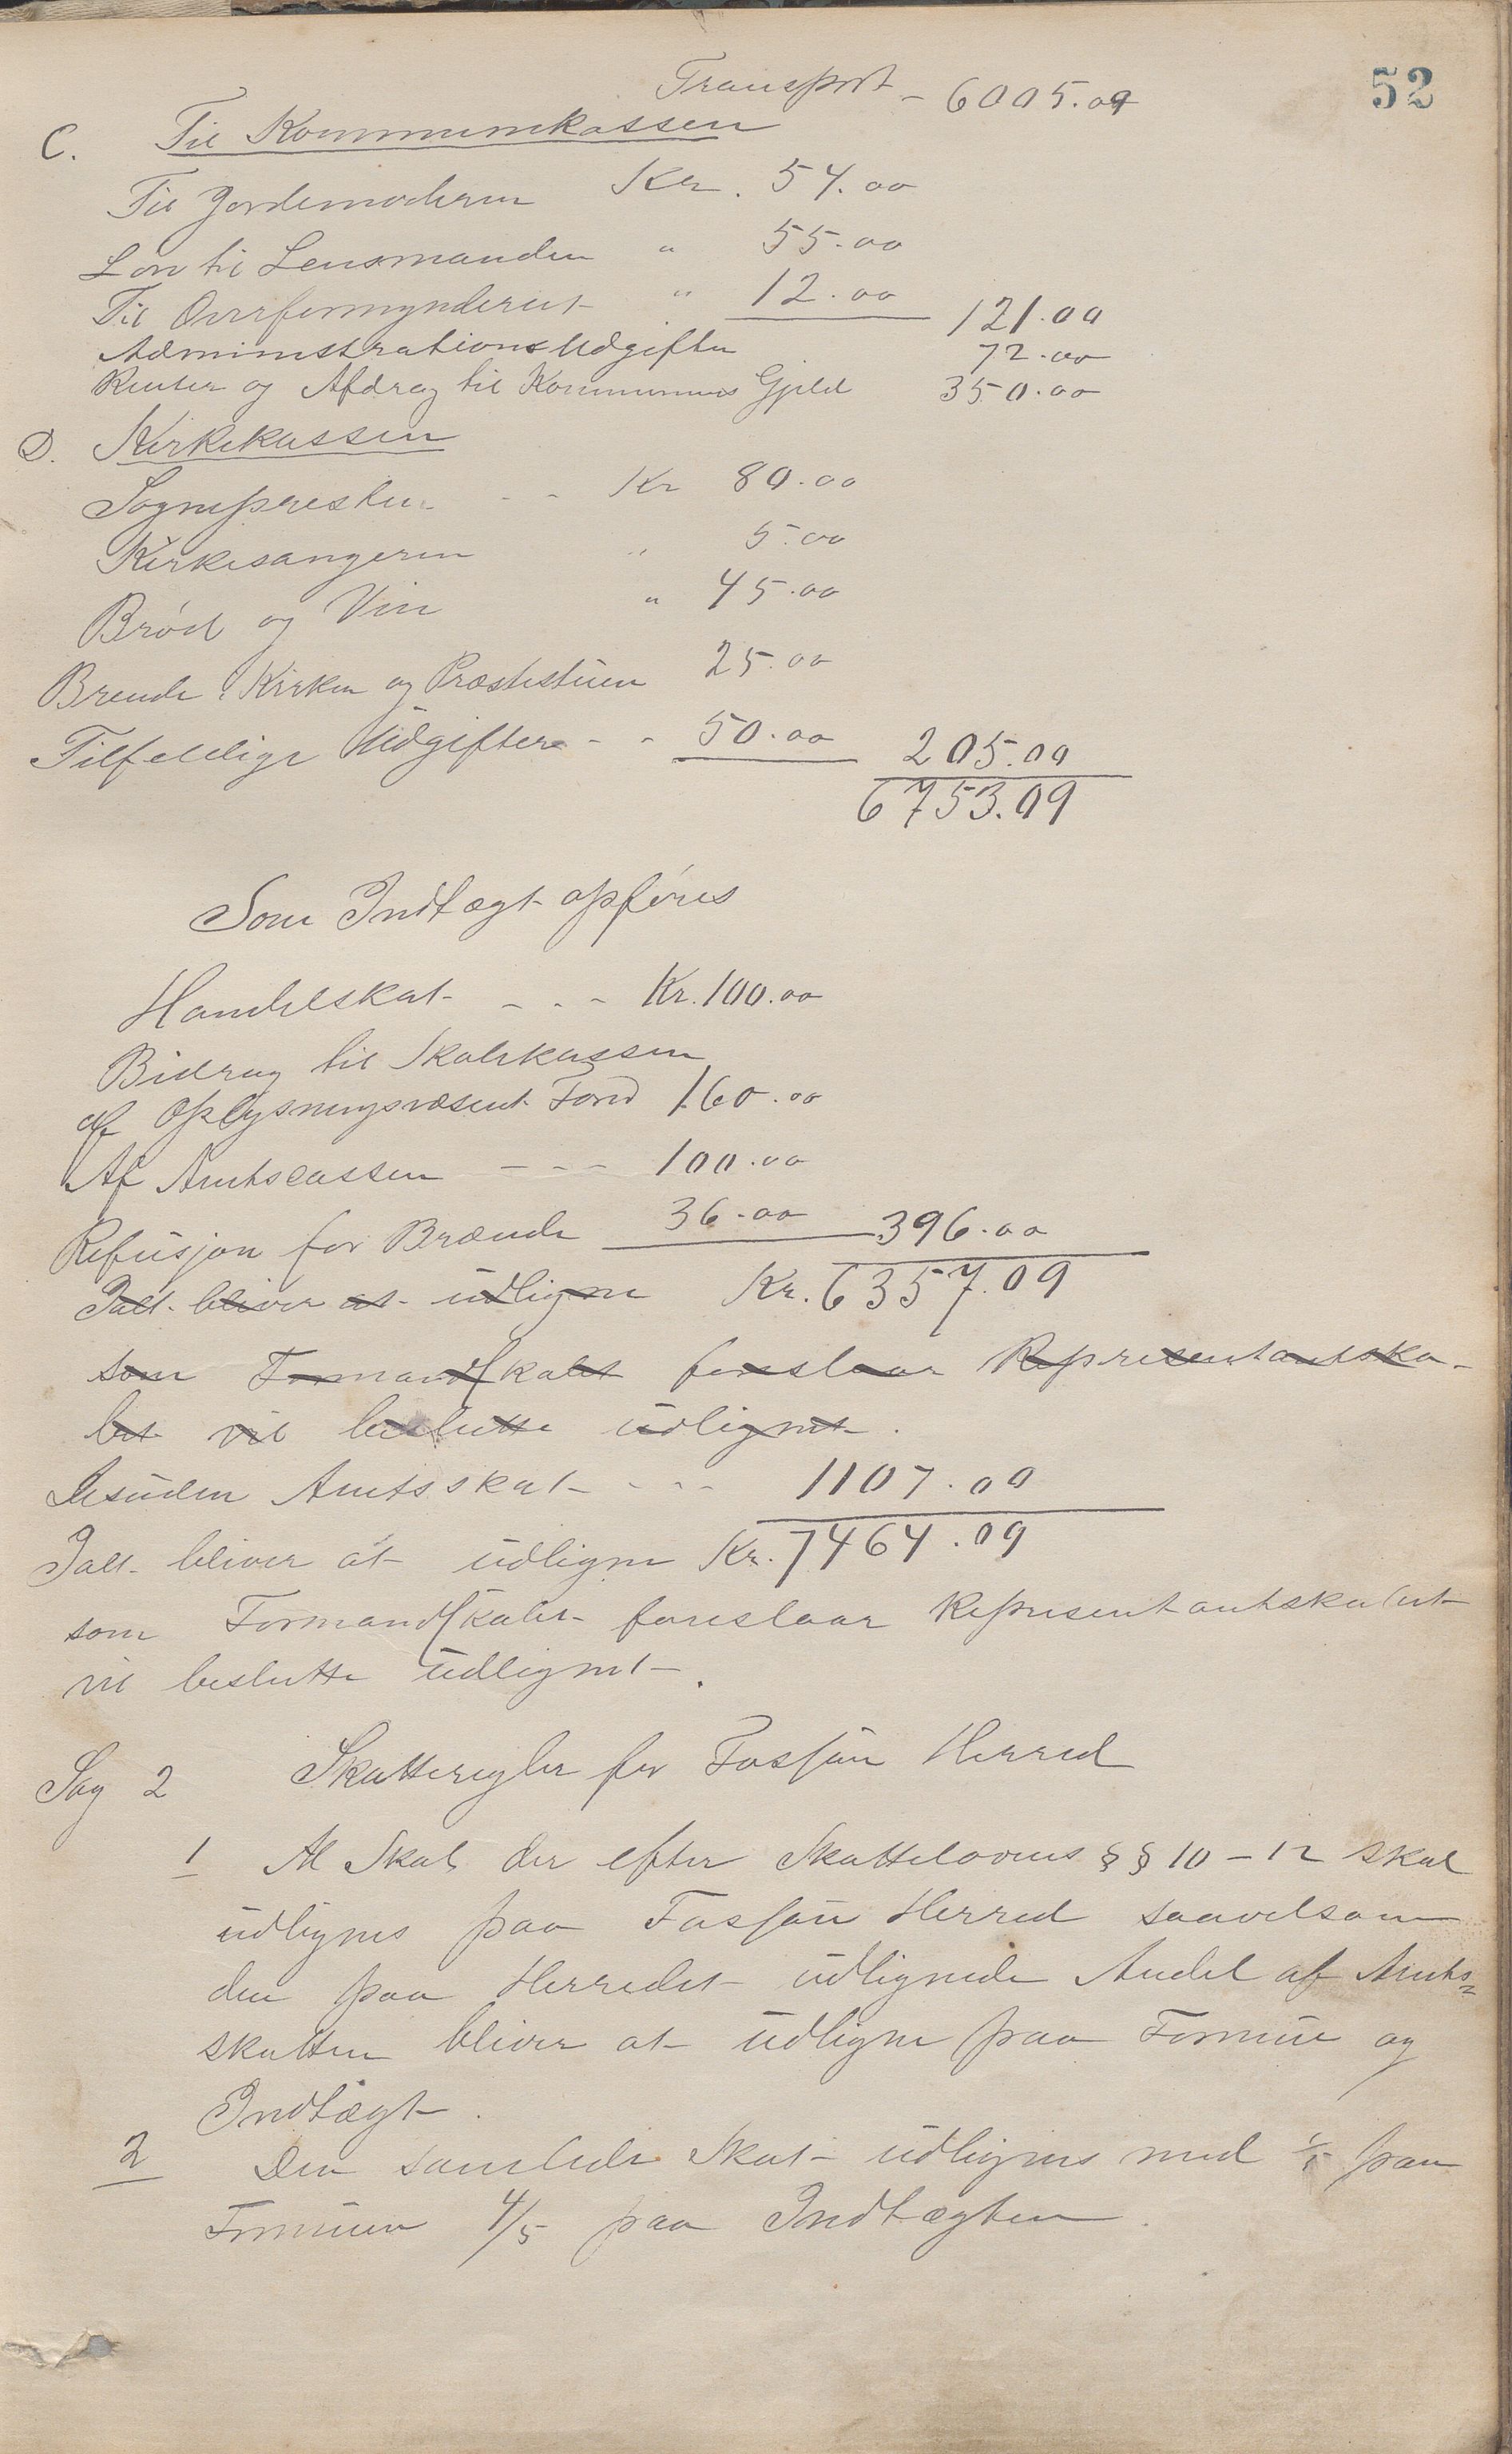 52
Transport - 6005.09
C. Til Kommunekassen
Til Jordemoderen Kr. 54.00
Løn til Lensmanden " 55.00
Til Overformynderiet " 12.00 121.00
Administrations Udgifter 72.00
Renter og Afdrag til Kommunens Gjeld 350.00
D. Kirkekassen
Sognepresten - - Kr 80.00
Kirkesangeren " 5.00
Brød og Vin " 45.00
Brende i Kirken og Præstestuen 25.00
Tilfeldige Udgifter - - 50.00 205.00
6753.09
Som Indtægt opføres
Handelskat - - - Kr. 100.00
Bidrag til Skolekassen
af Oplysningsvæsent Fond 160.00
Af Amtscassen - - - 100.00
Refusjon for Brænde 36.00 396.00
Ialt bliver at udligne Kr. 6357.09
som Formandskabet foreslaar Representantska-
bet vil beslutte udlignet.
Desuden Amtsskat - - - 1107.00
Ialt bliver at udligne Kr. 7464.09
som Formandskabet foreslaar Representantskabet
vil beslutte udlignet.
Sag 2 Skatteregler for Fosfjøn Herred
1 Al Skat der efter Skattelovens §§ 10-12 skal
udlignes paa Herred saavelsom
den paa Herredet udlignede Andel af Amts=
skatten bliver at udligne paa Formue og
Indtægt.
2 Den samlede Skat udlignes med 1/5 paa
Formuen 4/5 paa Indtægten.